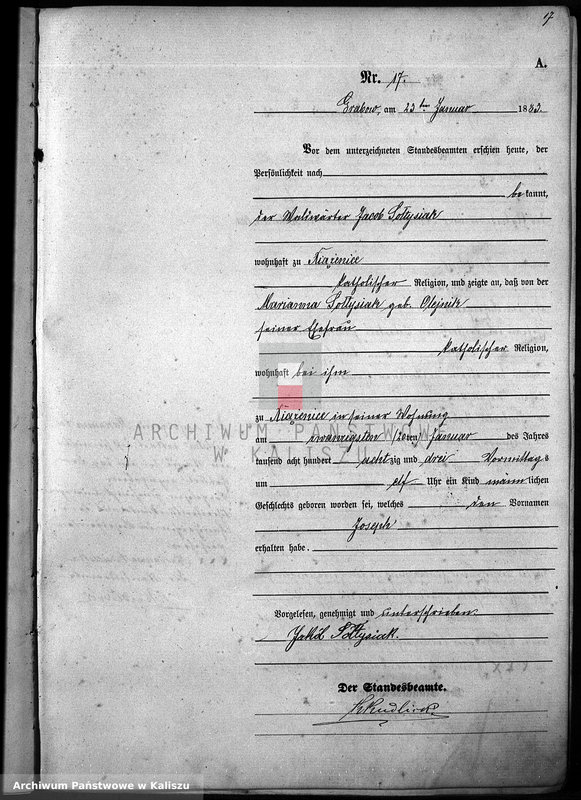 17
A.
Nr. 17.
Grabow, am 23ten Januar 1883.
Vor dem unterzeichneten Standesbeamten erschien heute, der
Persönlichkeit nach
bekannt,
der Waldwärter Jacob Sołtysiak
wohnhaft zu Xiąźenice
katholischer Religion, und zeigte an, daß von der
Marianna Sołtysiak geb. Olejnik
seiner Ehefrau
katholischer Religion,
wohnhaft bei ihm
zu Xiąźenice in seiner Wohnung
am zwanzigsten 20ten Januar des Jahres
tausend acht hundert achtzig und drei Vormittags
um elf Uhr ein Kind männlichen
Geschlechts geboren worden sei, welches den Vornamen
Joseph
erhalten habe.
Vorgelesen, genehmigt und unterschrieben
Jakób Sołtysiak.
Der Standesbeamte.
ARCHIWUM PAŃSTWOWE
W KALISZU
Archiwum Państwowe w Kaliszu